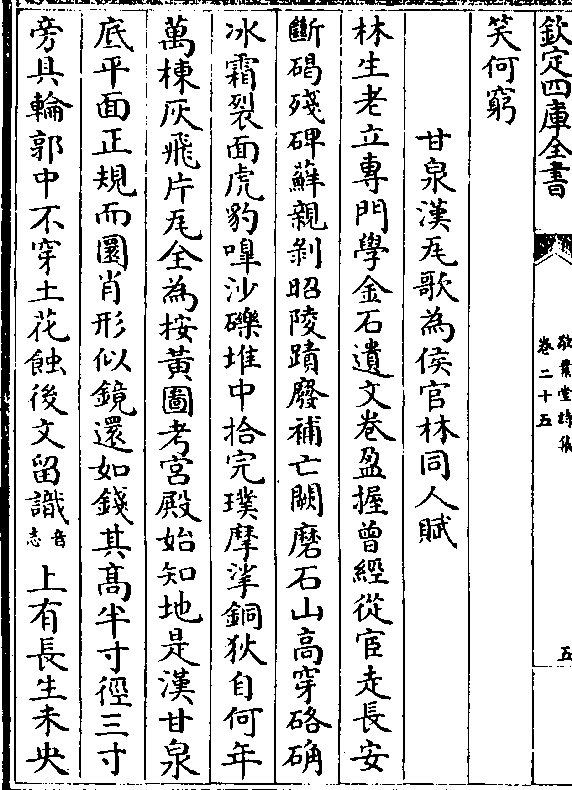 欽定四庫全書
敬業堂詩集
卷二十五
五
笑何窮
甘泉漢瓦歌為侯官林同人賦
林生老立專門學金石遺文卷盈握曾經從宦走長安
斷碣殘碑蘚親剝昭陵蹟廢補亡闕磨石山高穿硌确
冰霜裂面虎豹嘷沙礫堆中拾完璞摩挲銅狄自何年
萬棟灰飛片瓦全為按黃圖考宮殿始知地是漢甘泉
底平面正規而圜肖形似鏡還如錢其髙半寸徑三寸
旁具輪郭中不穿土花蝕後文留識音志上有長生未央